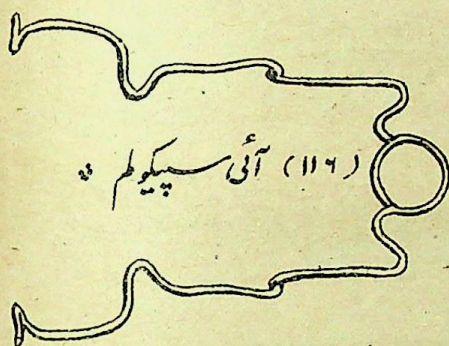 (۱۱۶) آئی سپیکولم *